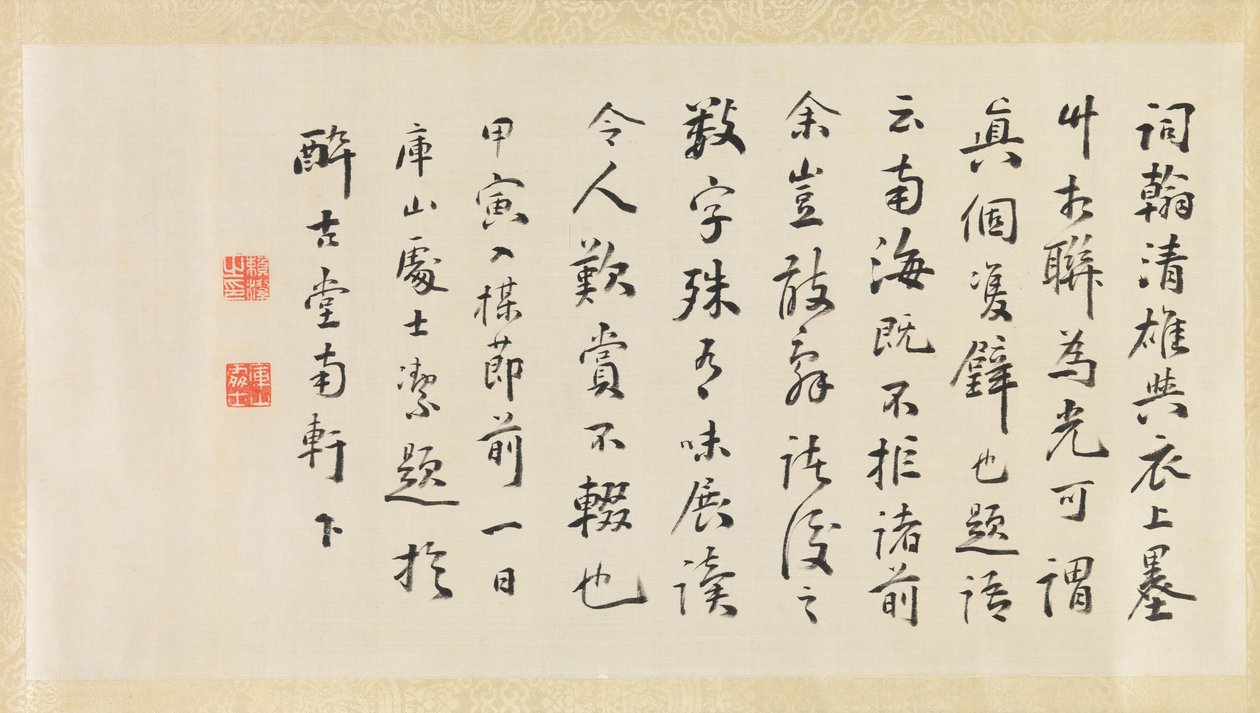 詞翰清雄與衣上墨
竹相聯為光可謂
眞個雙璧也題語
云南海既不拒諸前
余豈敢辞諸後之
數字殊有味展讀
令人歎賞不輟也
甲寅入楳節前一日
庫山處士潔題於
醉古堂南軒下
賴潔之印
庫山處士